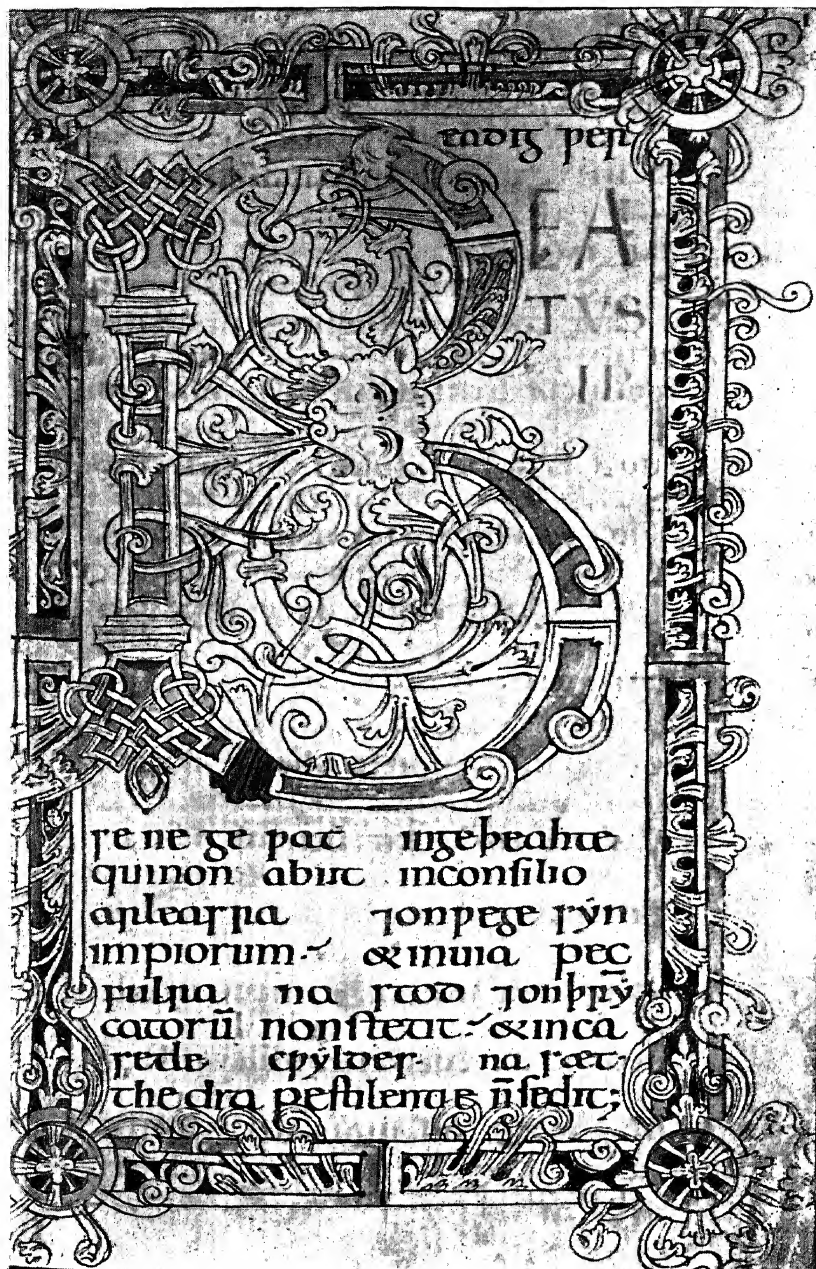 eadig ƿer
BEA
TVS
UIR
se ne ge ƿat ingeþeahte
quinon abiit inconsilio
arleasra ⁊onƿege sẏn
impiorum. &inuia pec
fulra na stod ⁊onþrẏ
catorū nonstetit. &inca
setle cƿẏldes na sæt
thedra pestilentiae n̄sedit;